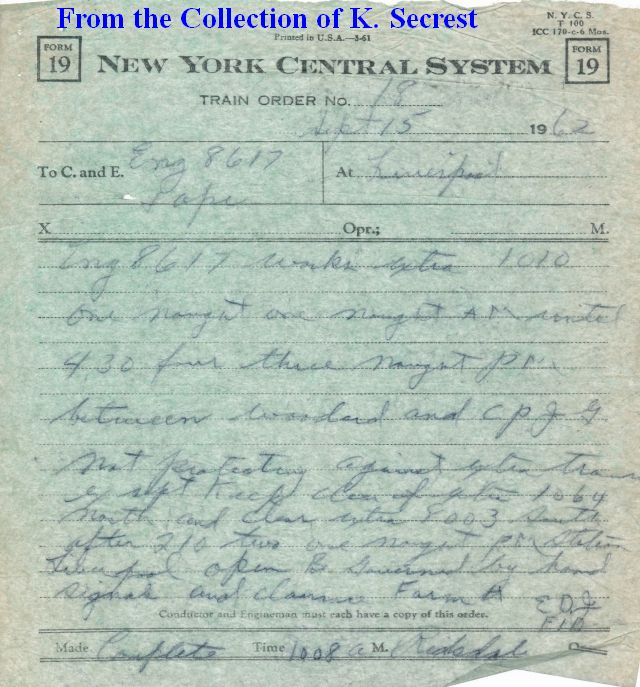 From the Collection of K. Secrest
N. Y. C. S.
T 100
ICC 170-c-6 Mos.
Printed in U.S.A.—3-61
FORM 19
NEW YORK CENTRAL SYSTEM
FORM 19
TRAIN ORDER NO. 18
Sept 15 1962
To C. and E. Eng 8617 At Liverpool
X Opr.; M.
Eng 8617 works extra 1010
one naught one naught AM until
4.30 four three naught PM
between Woodard and CP J G
not protecting against extra trains
except Keep clear of extra 1064
North and clear extra 8003 South
after 210 two one naught PM Station
Liverpool open Be Governed by hand
signals and clearance Form A
Conductor and Engineman must each have a copy of this order.
E D J
Made Complete Time 1008 a M.